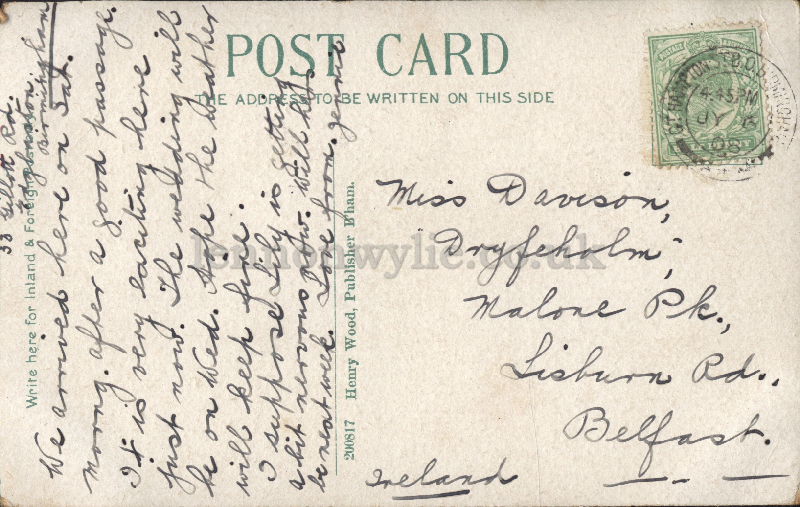 POST CARD
THE ADDRESS TO BE WRITTEN ON THIS SIDE
Write here for Inland & Foreign
33 Gillott Rd.
Edgbaston,
Birmingham
We arrived here on Sat.
morng. after a good passage.
It is very exciting here
just now. The wedding will
be on Wed. Hope the weather
will keep fine.
I suppose Lily is getting
a bit nervous now. Will
be next week. Love from Jennie
200817 Henry Wood, Publisher B'ham.
Miss Davison,
"Dryfeholm",
Malone Pk.,
Lisburn Rd.,
Belfast.
Ireland
4.45PM
JY 6
08
lennonwylie.co.uk